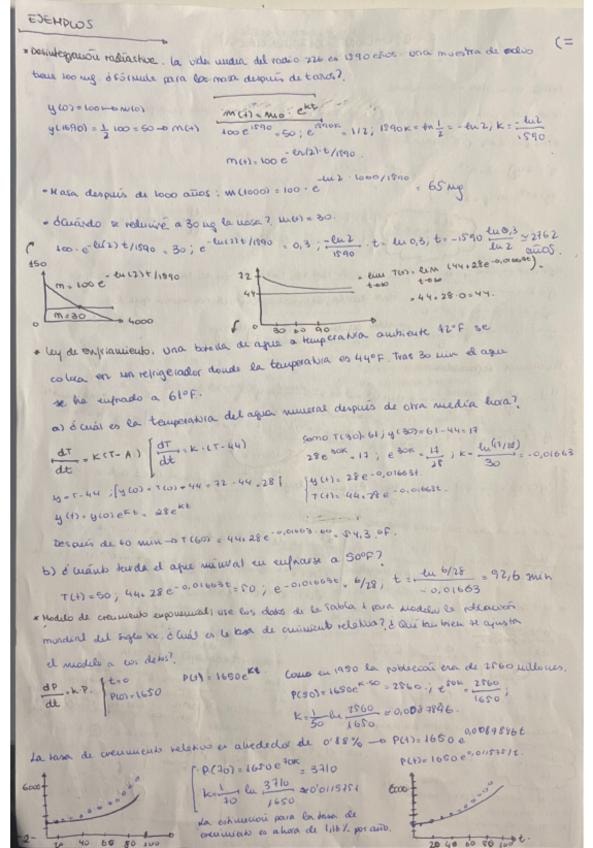 EJEMPLOS
* Desintegración radiactiva. La vida media del radio 226 es 1590 años. una muestra de radio
tiene 100 mg. ¿Fórmula para la masa después de t años?.
y(0)=100 → m(0)
m(t) = m0 · e^kt
y(1590) = 1/2 100 = 50 → m(t)
100 e^1590 = 50 ; e^1590k = 1/2 ; 1590k = ln 1/2 = -ln 2 ; k = -ln 2/1590
m(t) = 100 e^-ln(2)·t/1590
• Masa después de 1000 años: m(1000) = 100 · e^-ln 2 · 1000/1590 = 65 mg
• ¿Cuándo se reducirá a 30 mg la masa?, m(t) = 30.
100 · e^-ln(2) t/1590 = 30 ; e^-ln(2) t/1590 = 0,3 ; -ln 2/1590 · t = ln 0,3 ; t = -1590 ln 0,3/ln 2 ≈ 2762 años.
150
m = 100 e^-ln(2) t/1590
m = 30
0
4000
72
44
0
30 60 90
= lim T(t) = lim (44 + 28 e^-0,01663t)
t→∞ t→∞
= 44 + 28 · 0 = 44.
* Ley de enfriamiento. Una botella de agua a temperatura ambiente 72°F se
coloca en un refrigerador donde la temperatura es 44°F. Tras 30 min el agua
se ha enfriado a 61°F.
a) ¿cuál es la temperatura del agua mineral después de otra media hora?
dT/dt = K(T-A)
dT/dt = K·(T-44)
Como T(30) = 61 ; y(30) = 61-44 = 17
28e^30k = 17 ; e^30k = 17/28 ; k = ln(17/28)/30 = -0,01663
y = T-44 ; y(0) = T(0) - 44 = 72 - 44 = 28
y(t) = y(0) e^kt = 28e^kt
y(t) = 28e^-0,01663t
T(t) = 44 + 28e^-0,01663t.
Después de 60 min → T(60) = 44 + 28 e^-0,01663·60 = 54,3 °F.
b) ¿cuánto tarda el agua mineral en enfriarse a 50°F?
T(t) = 50 ; 44 + 28 e^-0,01663t = 50 ; e^-0,01663t = 6/28 , t = ln 6/28/-0,01663 = 92,6 min
* Modelo de crecimiento exponencial; use los datos de la tabla 1 para modelar la población
mundial del siglo XX. ¿Cuál es la tasa de crecimiento relativa? ¿Qué tan bien se ajusta
el modelo a los datos?.
dP/dt = K·P.
t=0
P(0) = 1650
P(t) = 1650e^Kt
Como en 1950 la población era de 2560 millones,
P(50) = 1650e^k·50 = 2560 ; e^50k = 2560/1650 ;
K = 1/50 ln 2560/1650 = 0,0087846.
La tasa de crecimiento relativo es alrededor de 0'88% → P(t) = 1650 e^0,0087846t
P(70) = 1650e^70k = 3710
K = 1/70 ln 3710/1650 ≈ 0,0115751
La estimación para la tasa de
crecimiento es ahora de 1,16% por año.
P(t) = 1650 e^0,0115751t.
6000
20 40 60 80 100
6000
20 40 60 80 100 t.